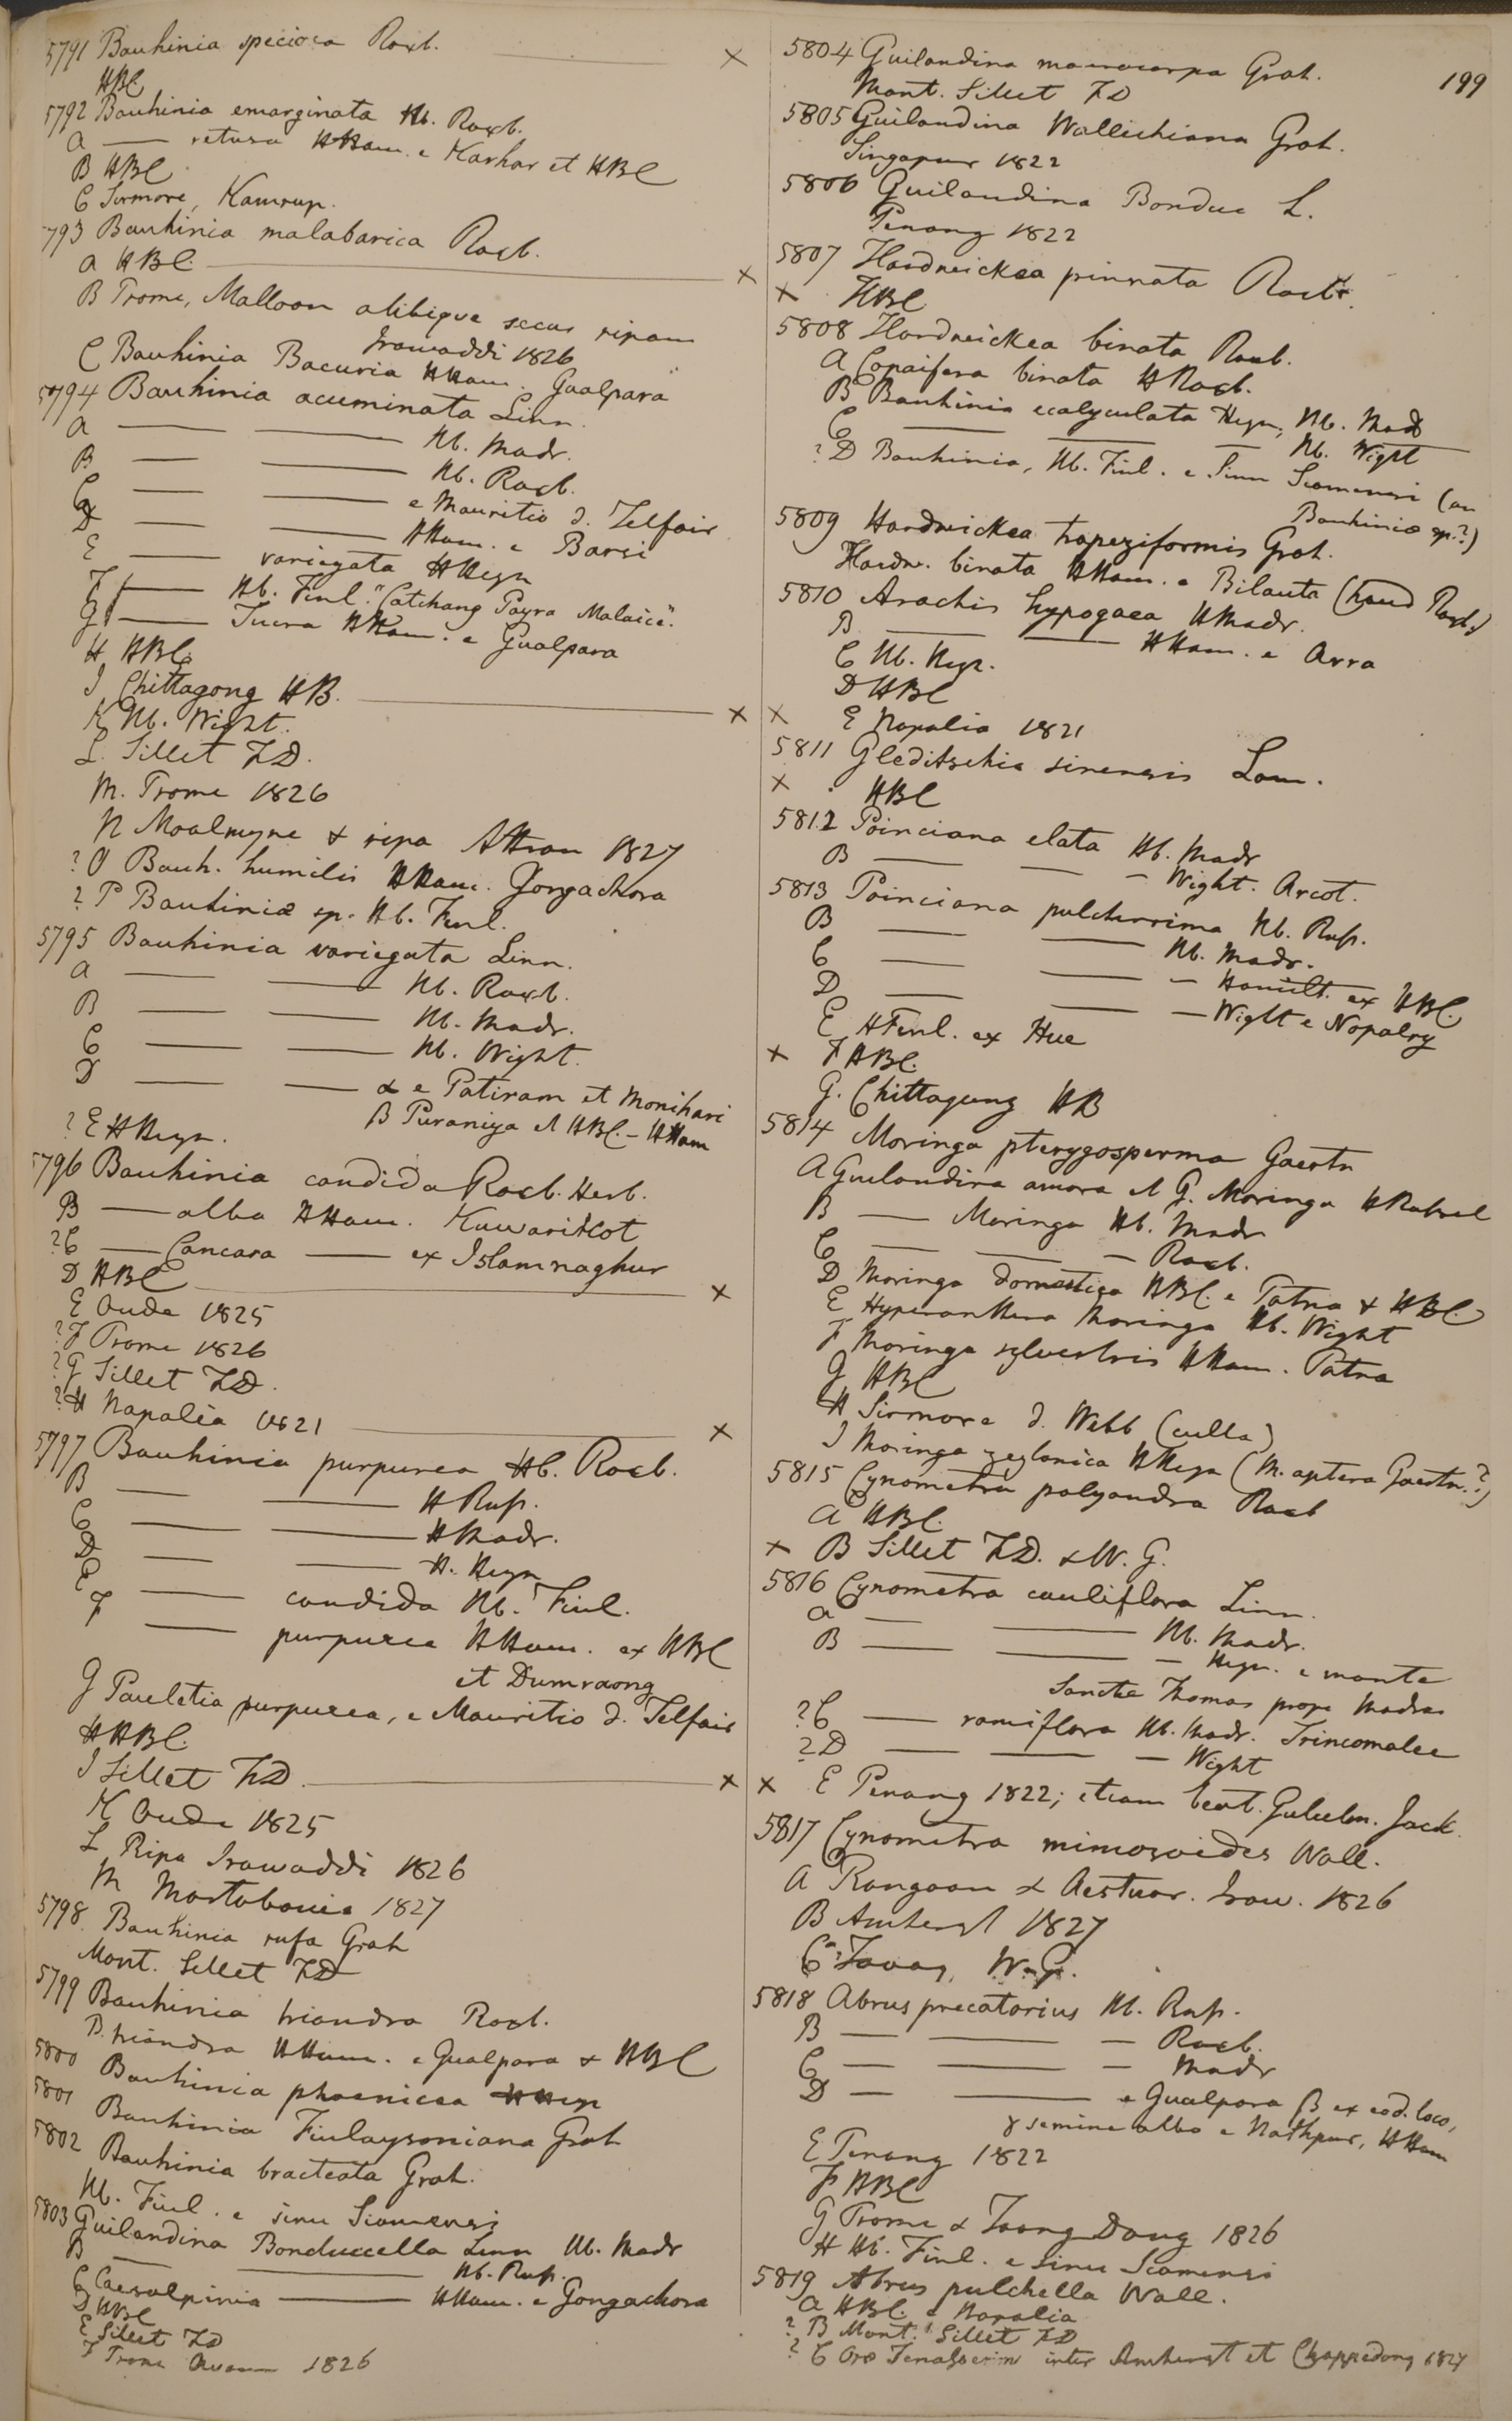 5791 Bauhinia speciosa Roxb. ×
HBC
5792 Bauhinia emarginata Hb. Roxb.
a — retusa HHam. e Karhar et HBC
B HBC
C Sirmore, Kamrup.
793 Bauhinia malabarica Roxb.
a HBC ×
B Prome, Malloon alibique secus ripam
Irawaddi 1826
C Bauhinia Bacuria HHam. Goalpara
5794 Bauhinia acuminata Linn.
a — — Hb. Madr.
B — — Hb. Roxb.
C — — e Mauritio d. Telfair
D — — HHam. e Barsi
E — variegata HHeyn
F — Hb. Finl. "Catchang Payra Malaice".
G — Tucra HHam. e Gualpara
H HBC
I Chittagong HB. ×
K Hb. Wight.
L. Sillet FD.
M. Prome 1826
N Moalmyne & ripa Attran 1827
? O Bauh. humilis HHam. Gongachora
? P Bauhiniæ sp. Hb. Finl.
5795 Bauhinia variegata Linn.
a — — Hb. Roxb.
B — — Hb. Madr.
C — — Hb. Wight.
D — — α e Patiram et Monihari
β Puraniya et HBC. – HHam
? E HHeyn.
5796 Bauhinia candida Roxb. Herb.
B — alba HHam. Kuwaritcot
? C — Cancara — ex Islamnaghur
D HBC ×
E Oude 1825
? F Prome 1826
? G Sillet FD.
? H Napalia 1821 ×
5797 Bauhinia purpurea Hb. Roxb.
B — — H Rup.
C — — HMadr.
D — — H. Heyn
E — candida Hb. Finl.
F — purpurea HHam. ex HBC
et Dumraong
G Pauletia purpurea, e Mauritio d. Telfair
H HBC.
I Sillet FD. ×
K Oude 1825
L Ripa Irawaddi 1826
M Martabania 1827
5798 Bauhinia rufa Grah
Mont. Sillet FD
5799 Bauhinia triandra Roxb.
B. triandra HHam. e Gualpara & HBC
5800 Bauhinia phoenicea HHeyn
5801 Bauhinia Finlaysoniana Grah
5802 Bauhinia bracteata Grah.
Hb. Finl. e sinu Siamensi
5803 Guilandina Bonduccella Linn Hb. Madr
B — — Hb. Rup.
C Caesalpinia — HHam. e Gongachora
D HBC
E Sillet FD
F Prome 1826
199
5804 Guilandina macrocarpa Grah.
Mont. Sillet FD
5805 Guilandina Wallichiana Grah.
Singapur 1822
5806 Guilandina Bonduc L.
Penang 1822
5807 Hardwickea pinnata Roxb.
× HBC
5808 Hardwickea binata Roxb.
a Copaifera binata HRoxb.
B Bauhinia ecalyculata Heyn, Hb. Mad
C — — — Hb. Wight
? D Bauhinia, Hb. Finl. e Sinu Siamensi (an
Bauhiniæ sp.?)
5809 Hardwickea trapeziformis Grah.
Hardw. binata HHam. e Bilauta (haud Roxb.)
5810 Arachis hypogaea HMadr.
B — — HHam. e Arra
C Hb. Heyn.
D HBC
× E Napalia 1821
5811 Gleditschia sinensis Lam.
× HBC
5812 Poinciana elata Hb. Madr
B — — — Wight. Arcot.
5813 Poinciana pulcherrima Hb. Rup.
B — — Hb. Madr.
C — — — Hamilt. ex HBC.
D — — — Wight e Nopalry
E HFinl. ex Hue
× F HBC.
G. Chittagung HB
5814 Moringa pterygosperma Gaertn
A Guilandina amora et G. Moringa HRottl
B — Moringa Hb. Madr
C — — — Roxb.
D Moringa domestica HBC. e Patna & HBC.
E Hyperanthera Moringa Hb. Wight
F Moringa sylvestris HHam. Patna
G HBC
H Sirmore d. Webb (culta)
I Moringa zeylanica HHeyn (M. aptera Gaertn.?)
5815 Cynometra polyandra Roxb
a HBC.
× B Sillet FD. & W. G.
5816 Cynometra cauliflora Linn.
a — — Hb. Madr.
B — — — Heyn. e monte
Sanctæ Thomas prope Madras
? C — ramiflora Hb. Madr. Trincomalee
? D — — — Wight
× E Penang 1822; etiam beat. Gulielm. Jack.
5817 Cynometra mimosoides Wall.
a Rangoon & Aestuar. Iraw. 1826
B Amherst 1827
C Tavoy, W. G.
5818 Abrus precatorius Hb. Rup.
B — — — Roxb.
C — — — Madr
D — — e Gualpara β ex eod. loco,
γ semine albo e Nathpur, HHam
E Penang 1822
F HBC
G Prome & Toong Dong 1826
H Hb. Finl. e sinu Siamensi
5819 Abrus pulchella Wall.
a HBC. e Napalia
? B Mont. Sillet FD
? C Ora Tenasserim inter Amherst et Chappedong 1827